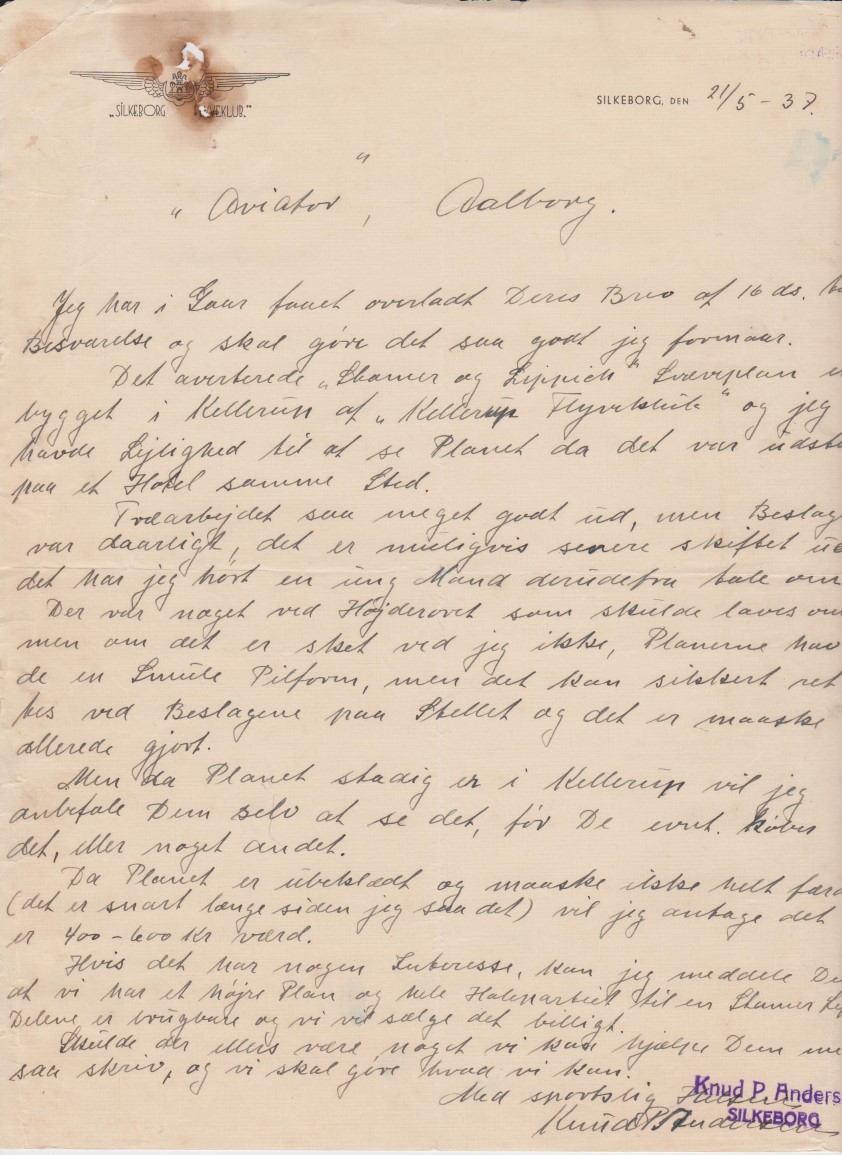 „SILKEBORG VEKLUB."
SILKEBORG, DEN 21/5 - 37.
„Aviator", Aalborg.
Jeg har i Gaar faaet overladt Deres Brev af 16 ds.
Besvarelse og skal gøre det saa godt jeg formaar.
Det averterede „Stamer og Lippich" Svæveplan
bygget i Kellerup af „Kellerup Flyveklub" og jeg
havde Lejlighed til at se Planet da det var udst
paa et Hotel samme Sted.
Træarbejdet saa meget godt ud, men Beslag
var daarligt, det er muligvis senere skiftet
det har jeg hørt en ung Mand derudefra tale om
Der var noget ved Højderoret som skulde laves om
men om det er sket ved jeg ikke, Planerne hav
de en Smule Pilform, men det kan sikkert ret
tes ved Beslagene paa Stellet og det er maaske
allerede gjort.
Men da Planet stadig er i Kellerup vil jeg
anbefale Dem selv at se det, før De evnt. køber
det, eller noget andet.
Da Planet er ubeklædt og maaske ikke helt færd
(det er snart længe siden jeg saa det) vil jeg antage det
er 400-600 Kr værd.
Hvis det har nogen Interesse, kan jeg meddele De
at vi har et højre Plan og hele Halepartiet til en Stamer
Delene er brugbare og vi vil sælge det billigt.
Skulde der ellers være noget vi kan hjælpe Dem me
saa skriv, og vi skal gøre hvad vi kan.
Med sportslig Hilsen
Knud P. Anders
SILKEBORG
Knud P. Andersen